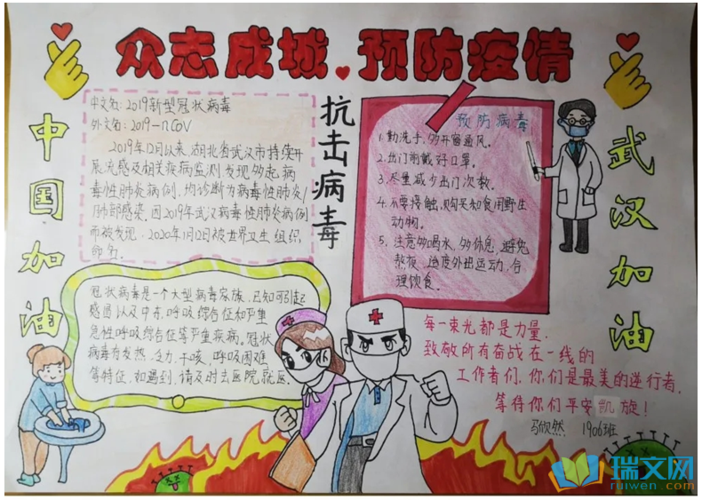 众志成城 预防疫情
中国加油
中文名:2019新型冠状病毒
外文名:2019-nCoV
2019年12月以来,湖北省武汉市持续开
展流感及相关疾病监测,发现多起病
毒性肺炎病例,均诊断为病毒性肺炎/
肺部感染。因2019年武汉病毒性肺炎病例
而被发现,2020年1月12日被世界卫生组织
命名。
抗击病毒
预防病毒
1.勤洗手,多开窗通风。
2.出门前戴好口罩。
3.尽量减少出门次数。
4.不要接触,购买和食用野生
动物。
5.注意多喝水,多休息,避免
熬夜,适度外出运动,合
理饮食。
武汉加油
冠状病毒是一个大型病毒家族,已知可引起
感冒以及中东呼吸综合征和严重
急性呼吸综合征等严重疾病。冠状
病毒有发热,乏力,干咳,呼吸困难
等特征,如遇到,请及时去医院就医。
每一束光都是力量.
致敬所有奋战在一线的
工作者们,你们是最美的逆行者,
等待你们平安凯旋!
马欣然 1906班
瑞文网
ruiwen.com